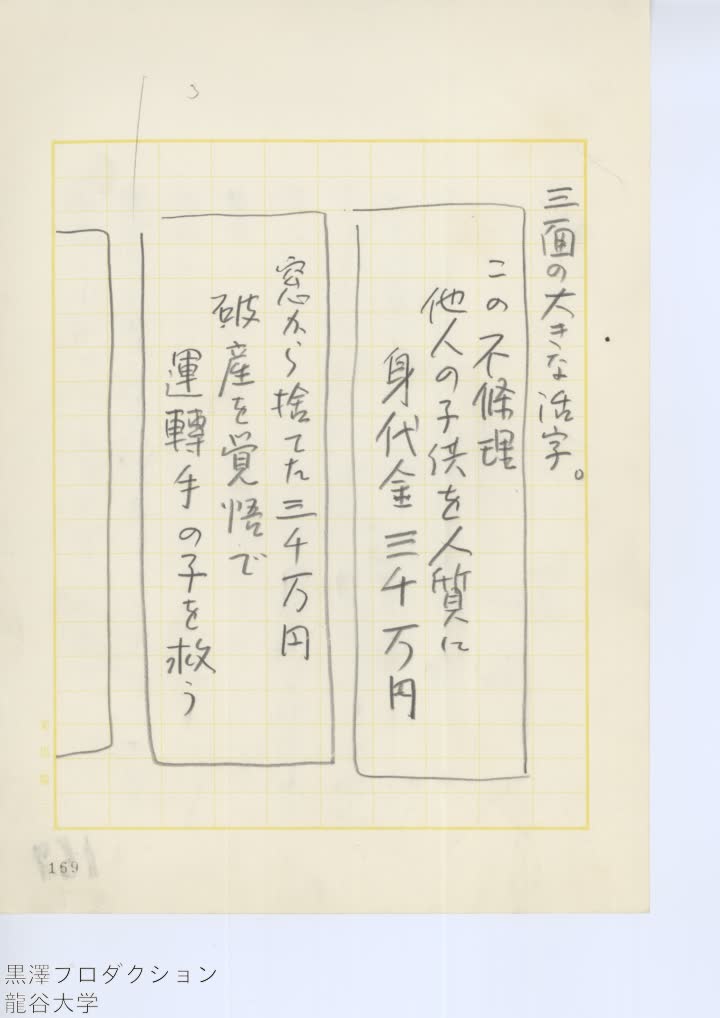 三面の大きな活字。
この不條理
他人の子供を人質に
身代金三千万円
窓から捨てた三千万円
破産を覚悟で
運轉手の子を救う
169
黒澤プロダクション
龍谷大学